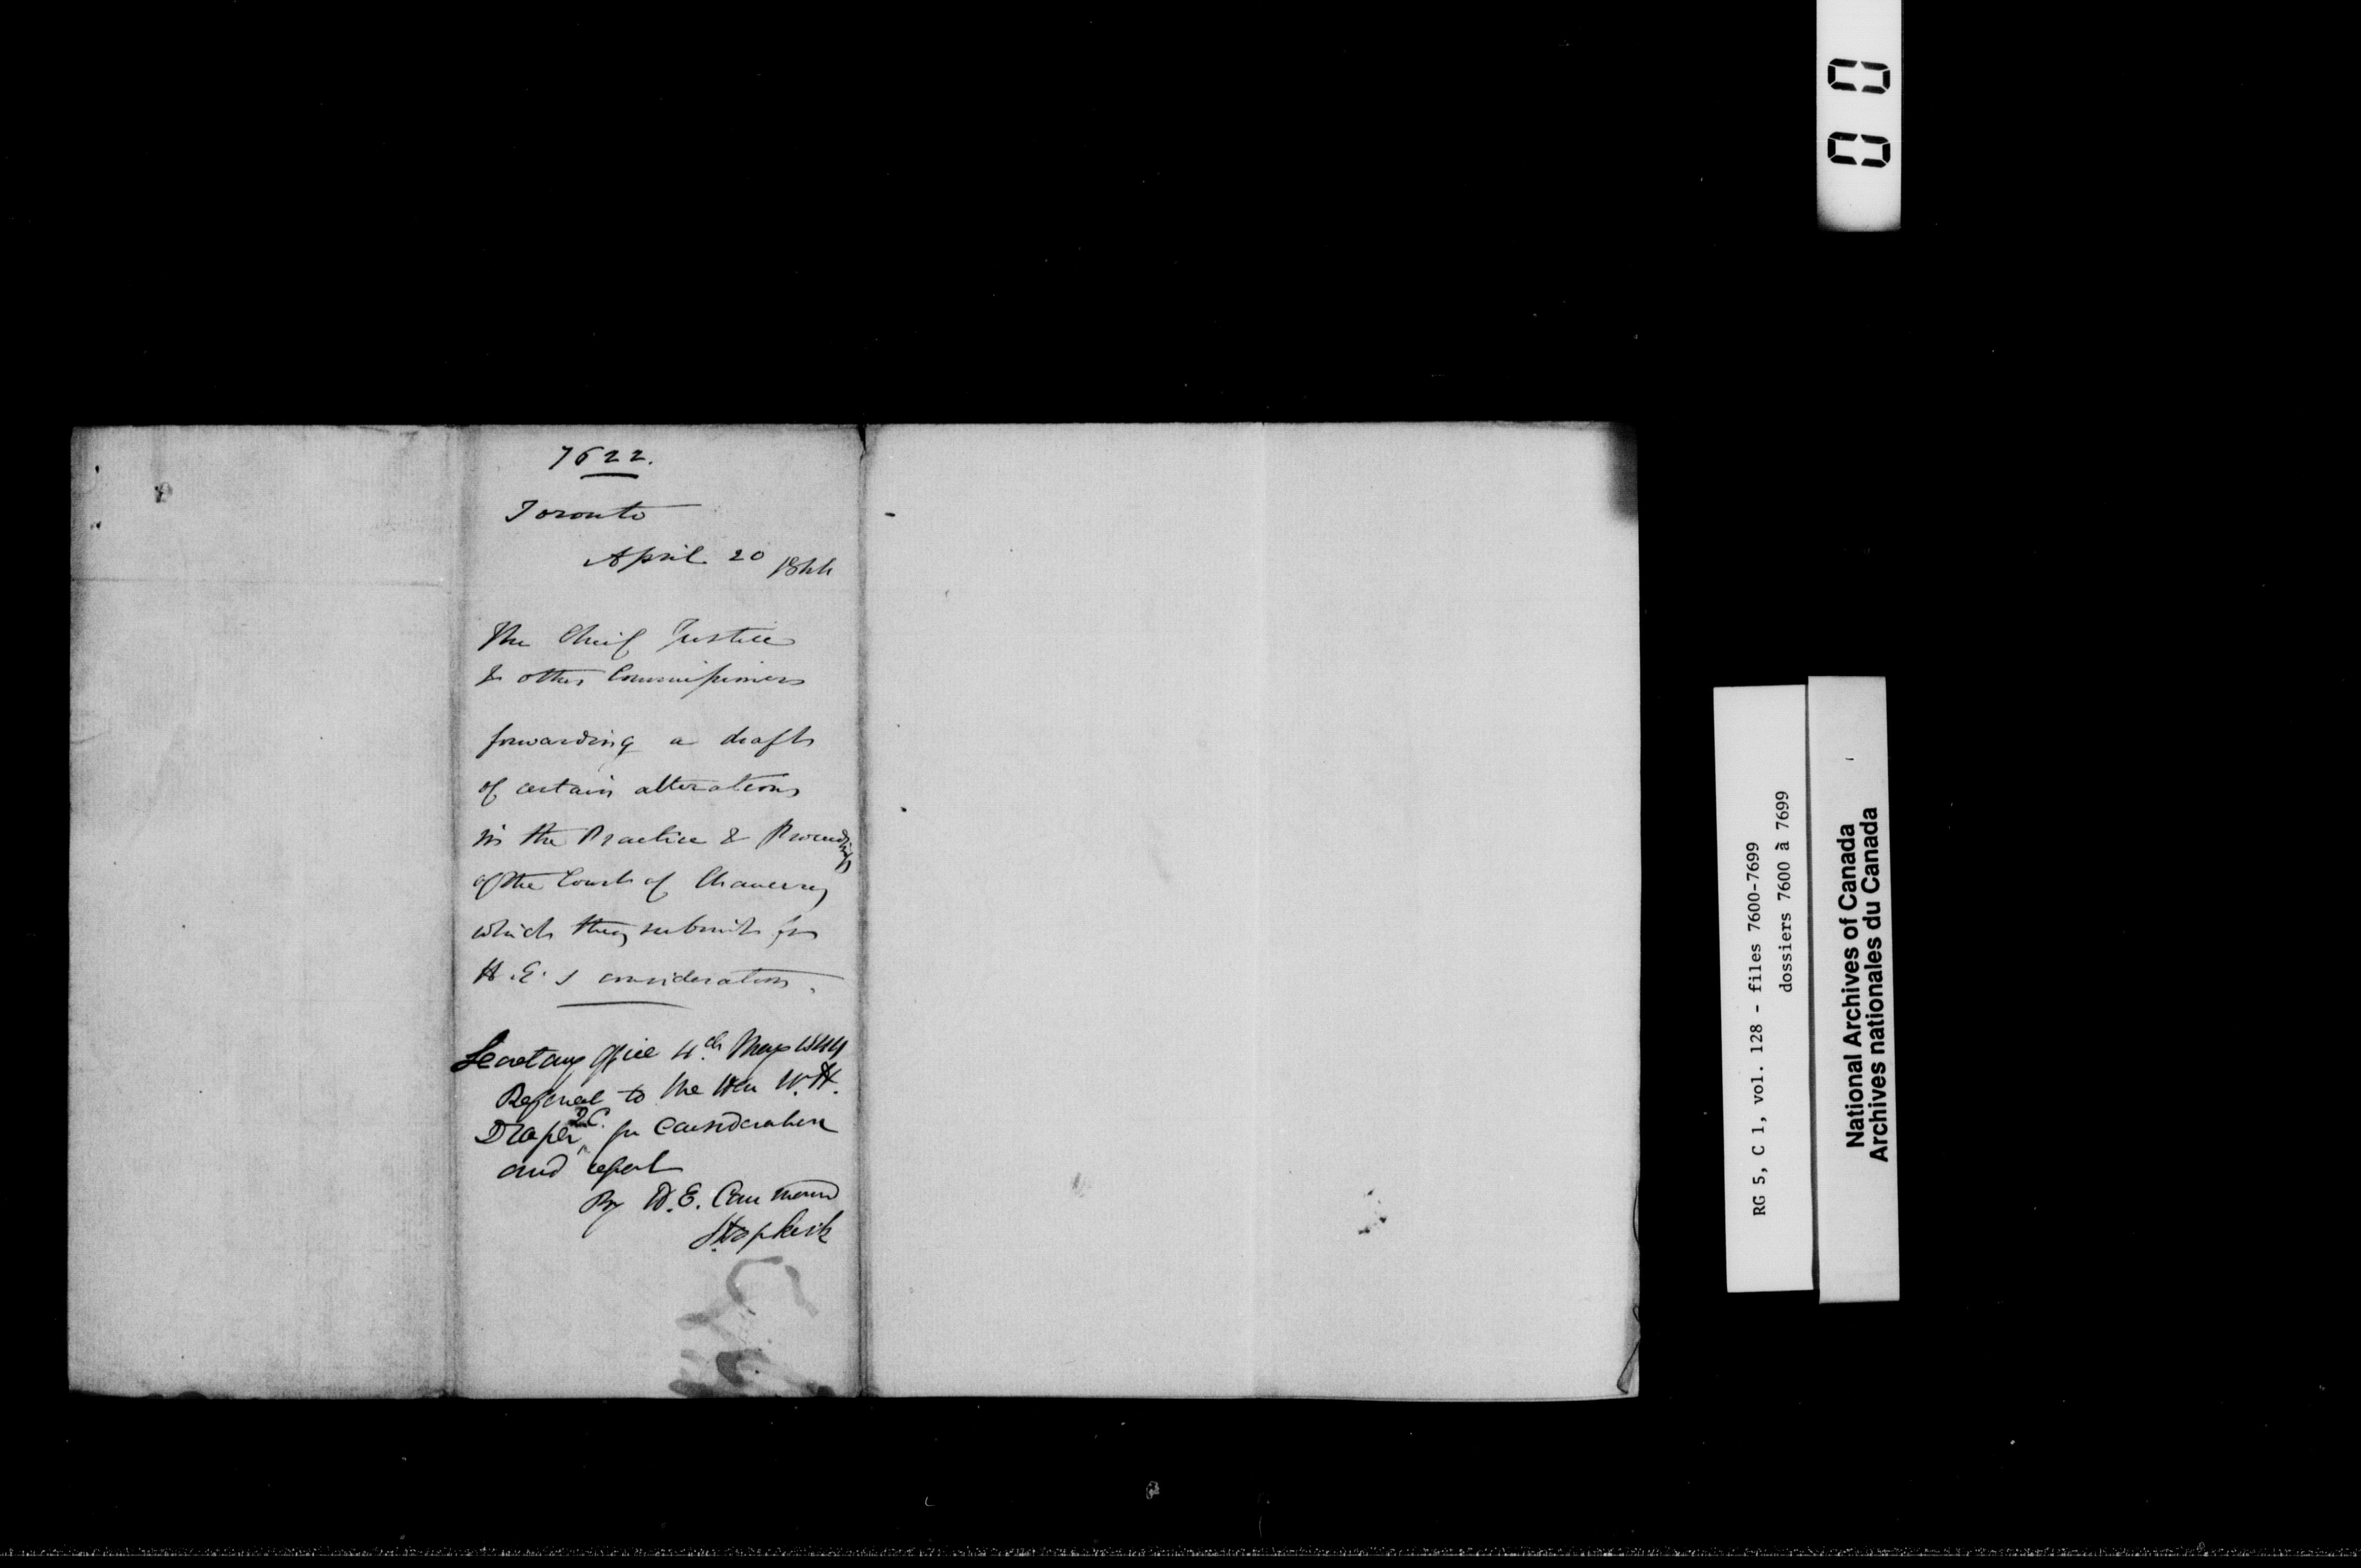 7622.
Toronto
April 20 1844
The Chief Justice
& other Commissioners
forwarding a draft
of certain alterations
in the Practice & Proceedings
of the Court of Chancery
which they submit for
H.E.'s consideration.
Secretary Office 4th May 1844
Referred to the Hon W.H.
Draper Q.C. for Consideration
and report
By H.E. Command
J. Hopkirk
00
RG 5, C 1, vol. 128 - files 7600-7699
dossiers 7600 à 7699
National Archives of Canada
Archives nationales du Canada